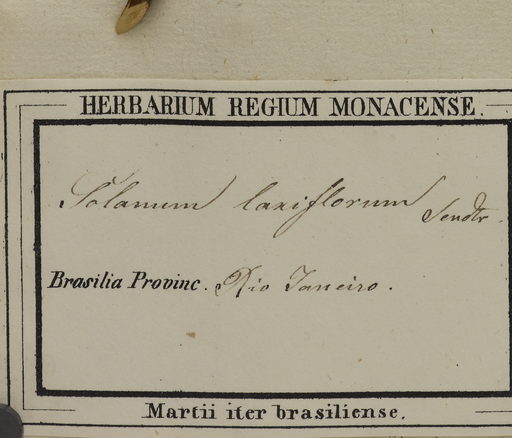 HERBARIUM REGIUM MONACENSE.
Solanum laxiflorum Sendtr.
Brasilia Provinc. Rio Janeiro.
Martii iter brasiliense.